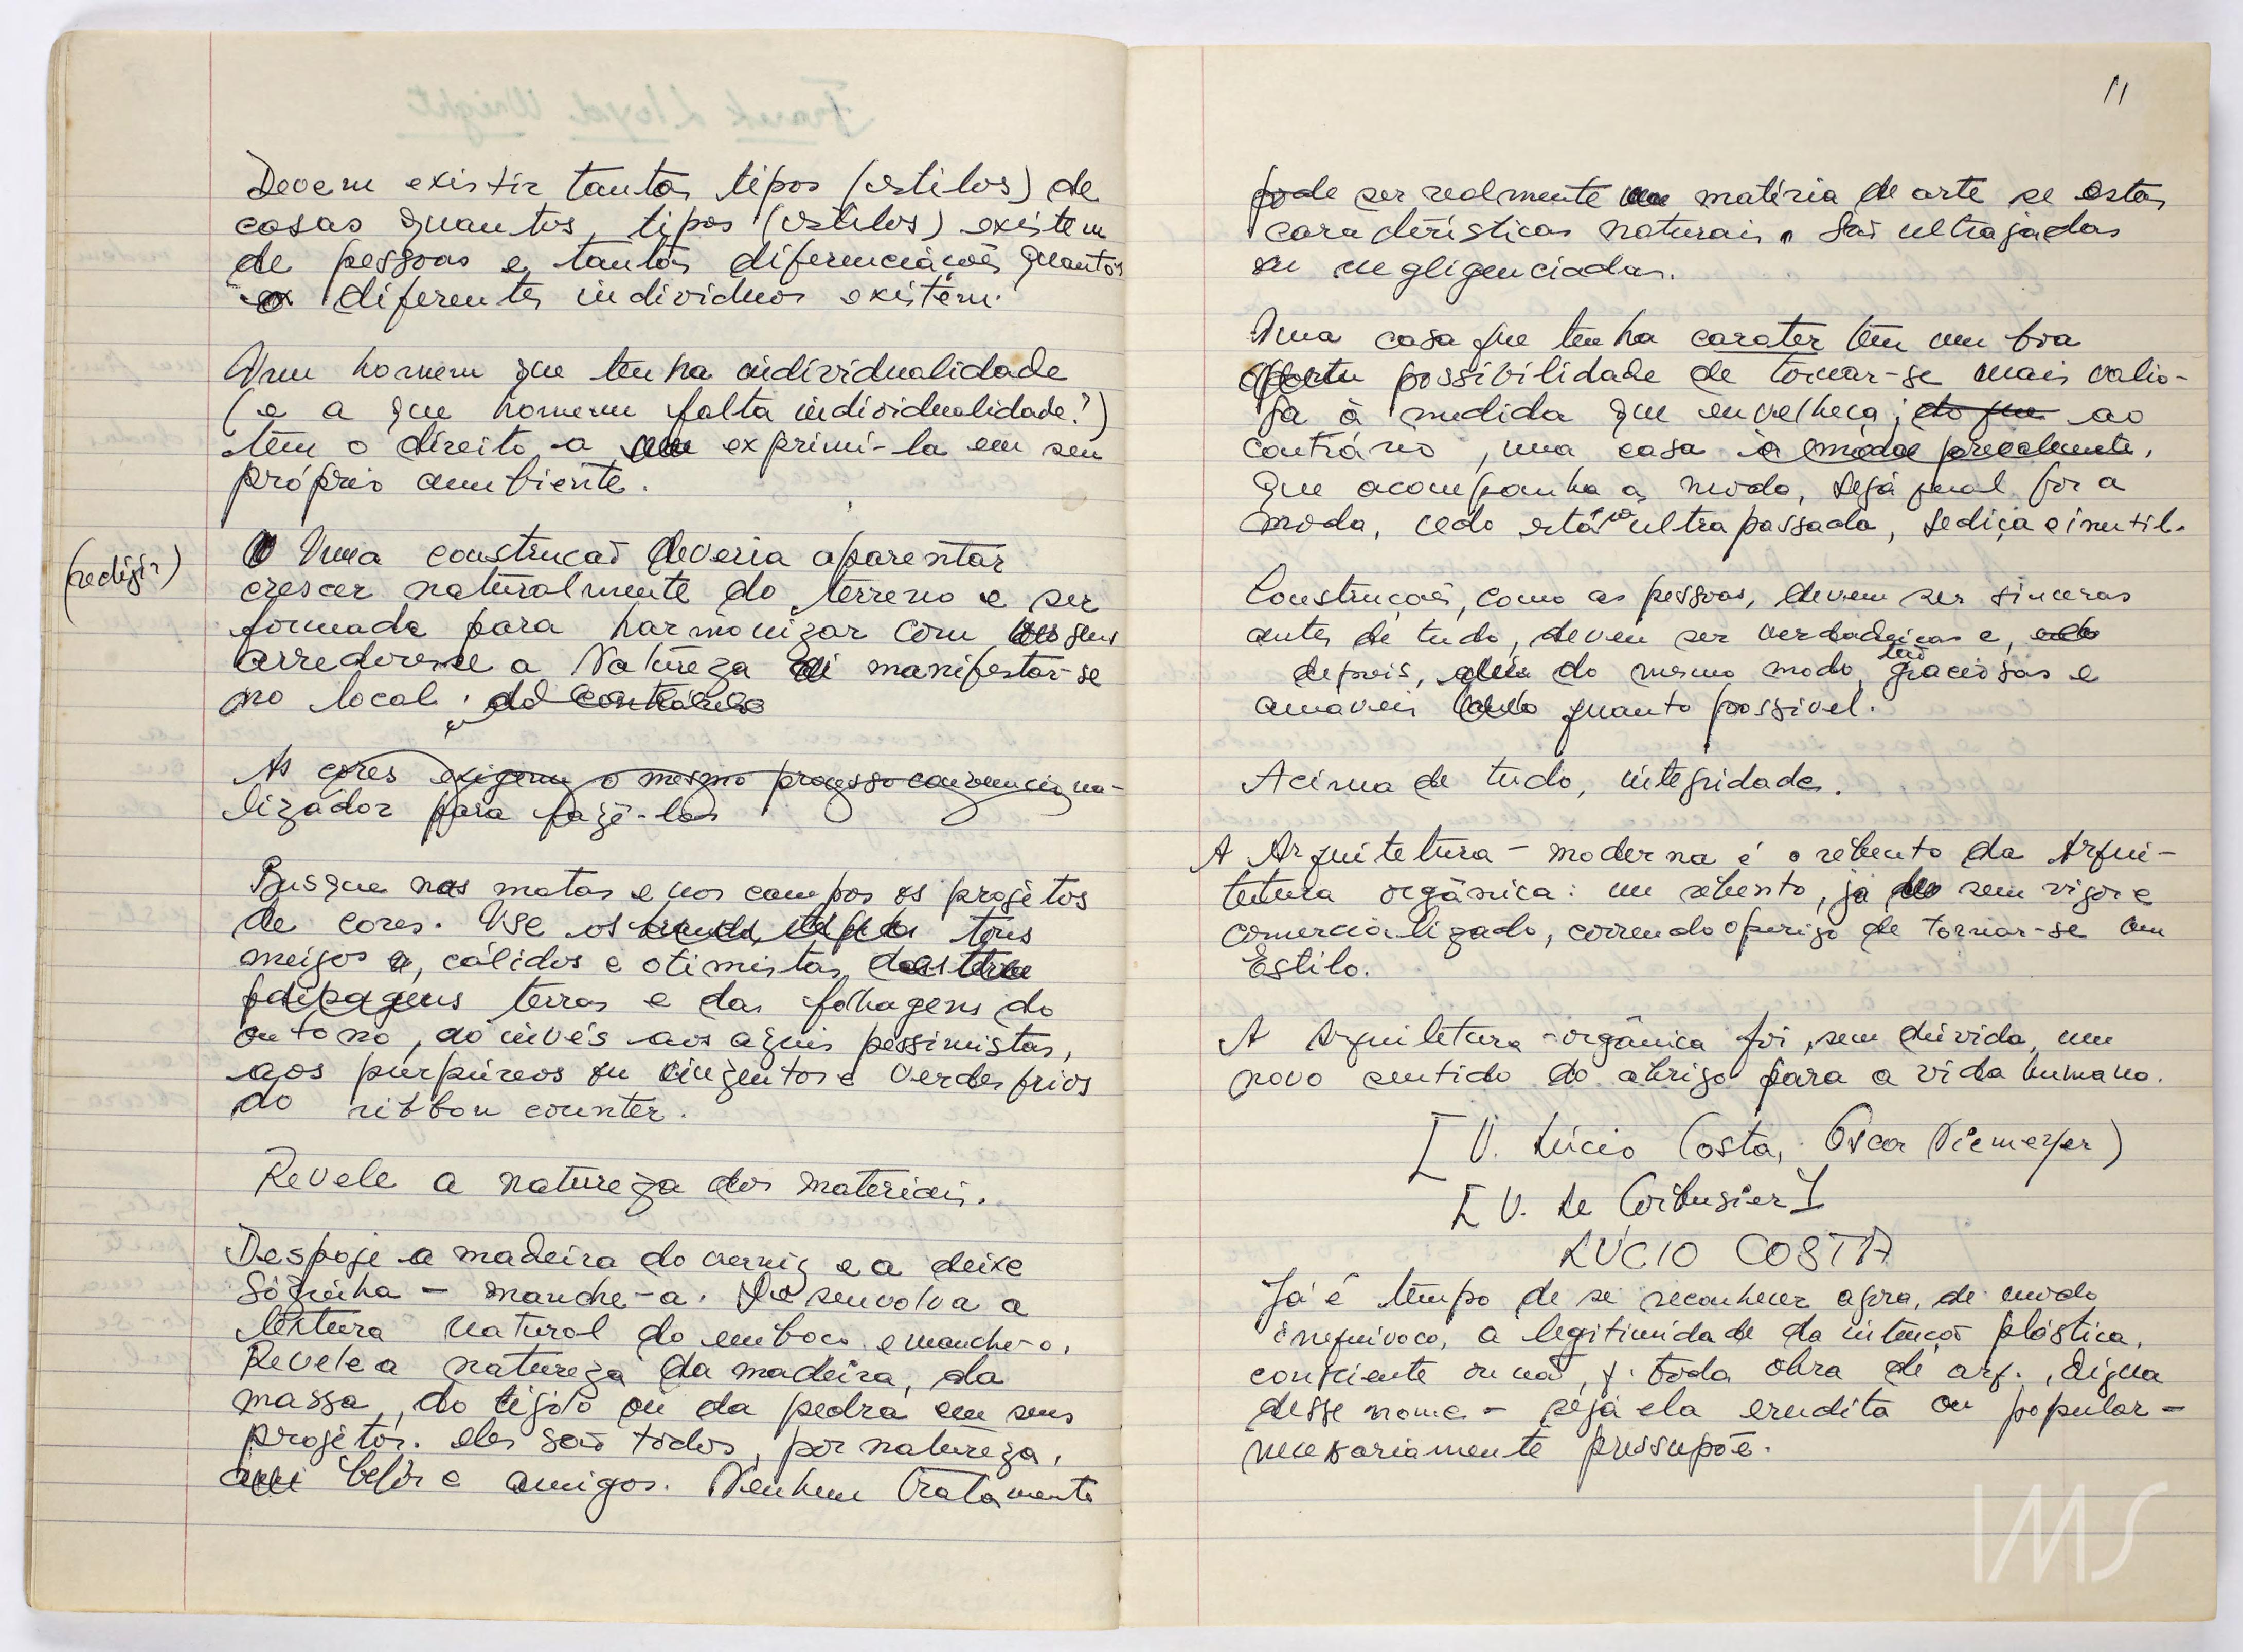 Devem existir tantos tipos (estilos) de
casas quantos tipos (estilos) existem
de pessoas e tantas diferenciações quantos
diferentes indivíduos existem.
Um homem que tenha individualidade
(e a que homem falta individualidade?)
têm o direito a exprimi-la em seu
próprio ambiente.
(redigir)
Uma construção deveria aparentar
crescer naturalmente do terreno e ser
formada para harmonizar com seus
arredores se a Natureza aí manifestar-se
no local; do contrário
As cores exigem o mesmo processo convenciona-
lizador para fazê-las
Busque nas matas e nos campos os projetos
de cores. Use os tons
meigos, cálidos e otimistas das
terras e das folhagens do
outono, ao invés aos azuis pessimistas,
aos purpúreos ou cinzentos e verdes frios
do ribbon counter.
Revele a natureza dos materiais.
Despoje a madeira do verniz e a deixe
sòzinha – manche-a. Desenvolva a
textura natural do emboço e manche-o.
Revele a natureza da madeira, da
massa, do tijolo ou da pedra em seus
projetos. eles são todos, por natureza,
belos e amigos. Nenhum tratamento
11
pode ser realmente matéria de arte se estas
caracteristicas naturais são ultrajadas
ou negligenciadas.
Uma casa que tenha carater têm um boa
possibilidade de tornar-se mais valio-
sa à medida que envelheça; do que ao
contrário, uma casa
que acompanha a moda, seja qual for a
moda, cedo estará ultrapassada, sediça e inutil.
Construções, como as pessoas, devem ser sinceras
antes de tudo, devem ser verdadeiras e,
depois, do mesmo modo, tão graciosas e
amaveis quanto possivel.
Acima de tudo, integridade.
A Arquitetura – moderna é o rebento da Arqui-
tetura orgânica: um rebento, já sem vigor e
comercializado, correndo o perigo de tornar-se um
Estilo.
A Arquitetura - orgânica foi, sem dúvida, um
novo sentido do abrigo para a vida humana.
[V. Lúcio Costa, Oscar Niemeyer)
[V. Le Corbusier]
LÚCIO COSTA
Já é tempo de se reconhecer agora, de modo
inequivoco, a legitimidade da intenção plástica,
consciente ou não, q. toda obra de arq., digna
desse nome – seja ela erudita ou popular –
necessariamente pressupõe.
IMS